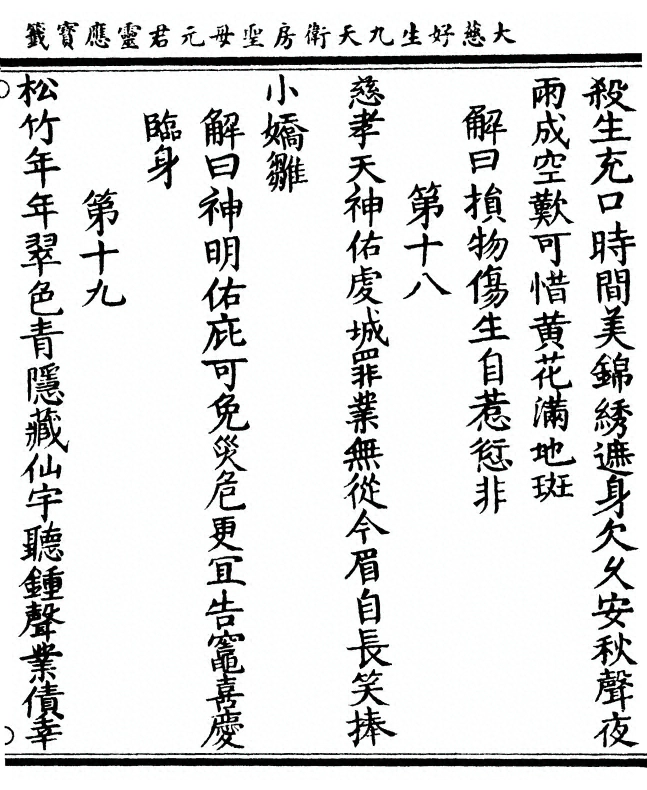 大慈好生九天衛房聖母元君靈應寶籤
殺生充口時間美錦綉遮身欠久安秋聲夜
雨成空歎可惜黃花滿地斑
解曰損物傷生自惹愆非
第十八
慈孝天神佑虔城罪業無從今眉自長笑捧
小嬌雛
解曰神明佑庇可免災危更宜告竈喜慶
臨身
第十九
松竹年年翠色青隱藏仙宇聽鍾聲業債幸